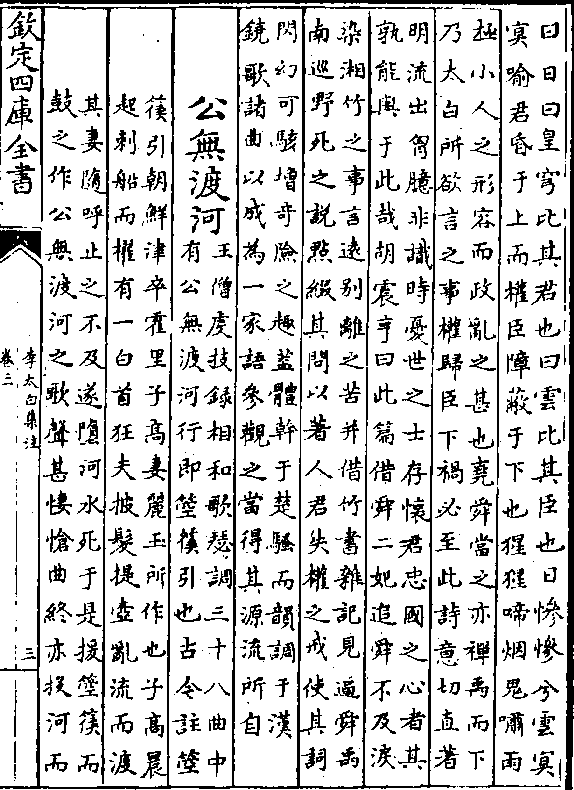 曰日曰皇穹比其君也曰雲比其臣也日慘慘兮雲冥
冥喻君昏于上而權臣障蔽于下也猩猩啼烟鬼嘯雨
極小人之形容而政亂之甚也堯舜當之亦禪禹而下
乃太白所欲言之事權歸臣下禍必至此詩意切直著
明流出胷臆非識時憂世之士存懷君忠國之心者其
孰能與于此哉胡震亨曰此篇借舜二妃追舜不及淚
染湘竹之事言遠别離之苦并借竹書雜記見逼舜禹
南巡野死之說點綴其間以著人君失權之戒使其詞
閃幻可駭增奇險之趣蓋體幹于楚騷而韻調于漢
鐃歌諸曲以成為一家語參觀之當得其源流所自
公無渡河
王僧虔技録相和歌瑟調三十八曲中
有公無渡河行即箜篌引也古今註箜
篌引朝鮮津卒霍里子髙妻麗玉所作也子髙晨
起刺船而櫂有一白首狂夫披髮提壺亂流而渡
其妻隨呼止之不及遂墮河水死于是援箜篌而
鼓之作公無渡河之歌聲甚悽愴曲終亦投河而
欽定四庫全書
李太白集注
卷三
三